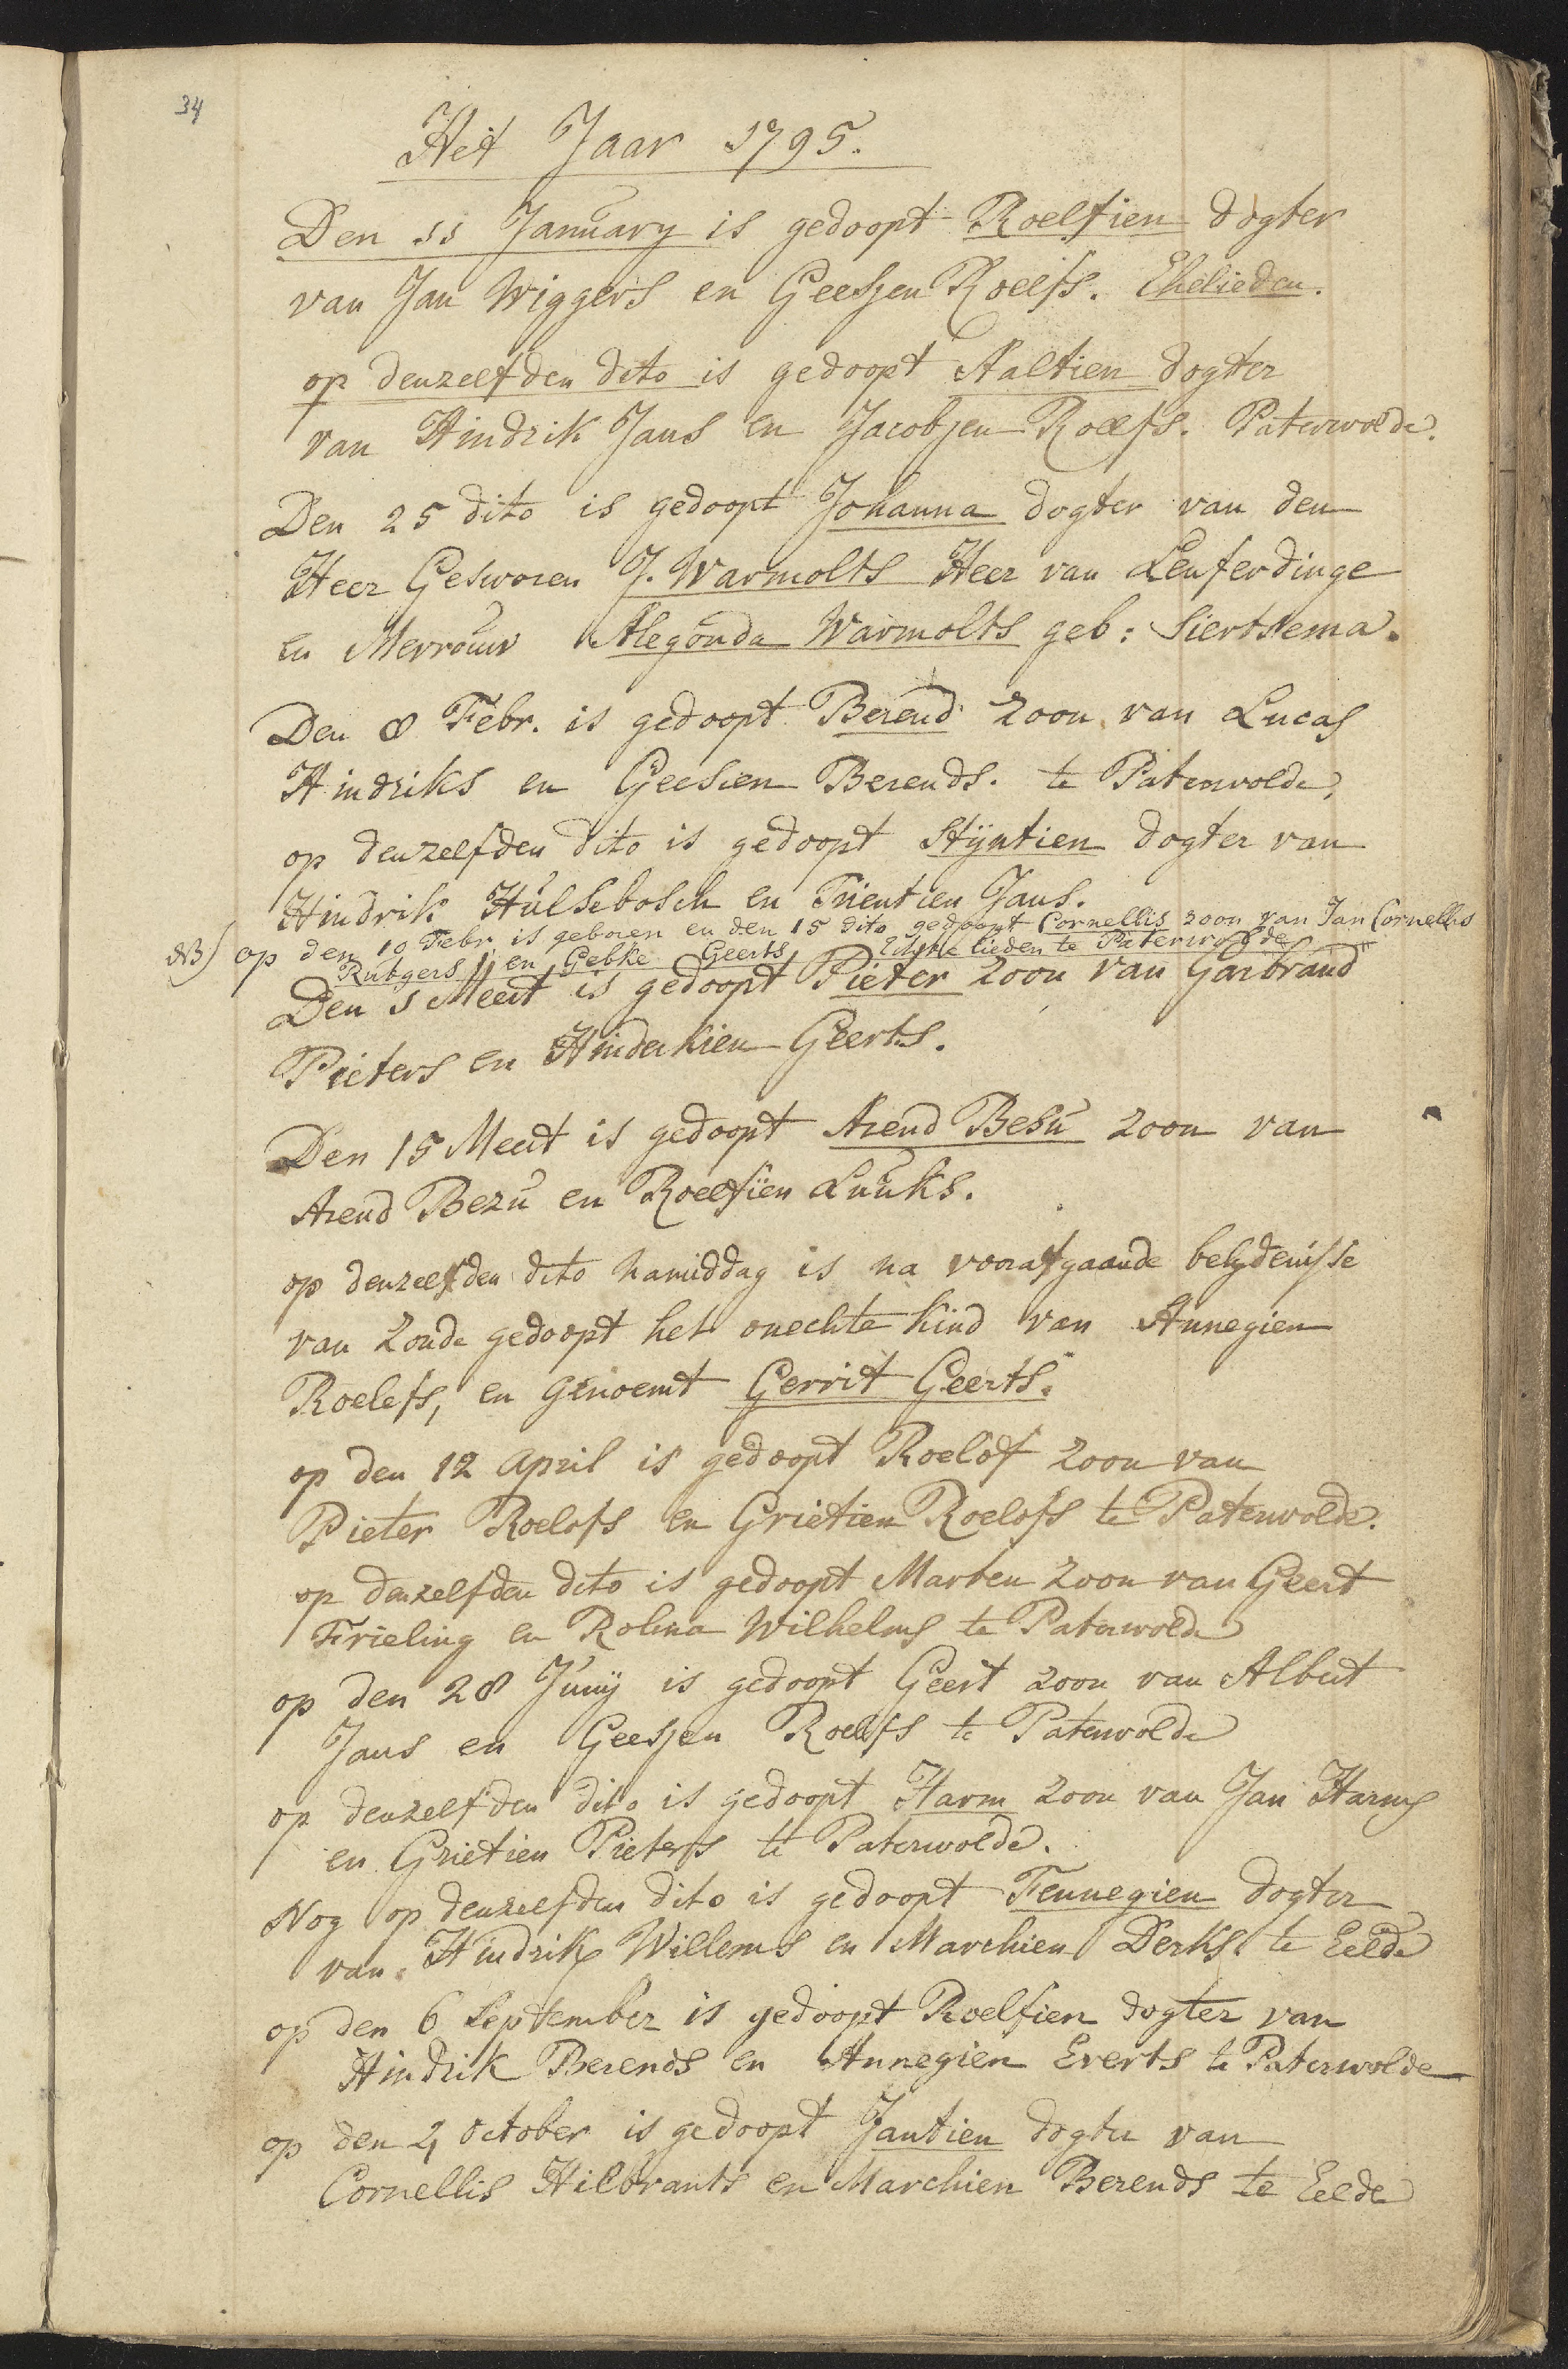 34
Het Jaar 1795.
Den 11 January is gedoopt Roelfien dogter
van Jan Wiggers en Geesjen Roelfs. Ehelieden.
op denzelfden dito is gedoopt Aaltien dogter
van Hindrik Jans en Jacobjen Roelfs. Paterwolde.
Den 25 dito is gedoopt Johanna dogter van den
Heer Gesworen J. Warmolts Heer van Lenferdinge
en Mevrouw Alegonda Warmolts geb: Siertsema.
Den 8 Febr. is gedoopt Berend zoon van Lucas
Hindriks en Geesien Berends. te Paterwolde,
op denzelfden dito is gedoopt Stijntien dogter van
Hindrik Hulsebosch en Trientien Jans.
NB) op den 10 Febr. is geboren en den 15 dito gedoopt Cornellis zoon van Jan Cornellis
Rutgers en Gebke Geerts Egte lieden te Paterwolde
Den 1 Meert is gedoopt Pieter zoon van Garbrand
Pieters en Hinderkien Geerts.
Den 15 Meert is gedoopt Arend Besu zoon van
Arend Bezu en Roelfien Luuks.
op denzelfden dito namiddag is na voorafgaande belydenisse
van zonde gedoopt het onechte kind van Annegien
Roelefs, en genoemt Gerrit Geerts.
op den 12 April is gedoopt Roelof zoon van
Pieter Roelofs en Grietien Roelofs te Paterwolde.
op denzelfden dito is gedoopt Marten zoon van Geert
Frieling en Rolina Wilhelms te Paterwolde
op den 28 Junij is gedoopt Geert zoon van Albert
Jans en Geesjen Roelfs te Paterwolde
op denzelfden dito is gedoopt Harm zoon van Jan Harms
en Grietien Pieters te Paterwolde.
Nog op denzelfden dito is gedoopt Fennegien dogter
van Hindrik Willems en Marchien Derks te Eelde
op den 6 September is gedoopt Roelfien dogter van
Hindrik Berends en Annegien Everts te Paterwolde
op den 4 October is gedoopt Jantien dogter van
Cornellis Hilbrants en Marchien Berends te Eelde